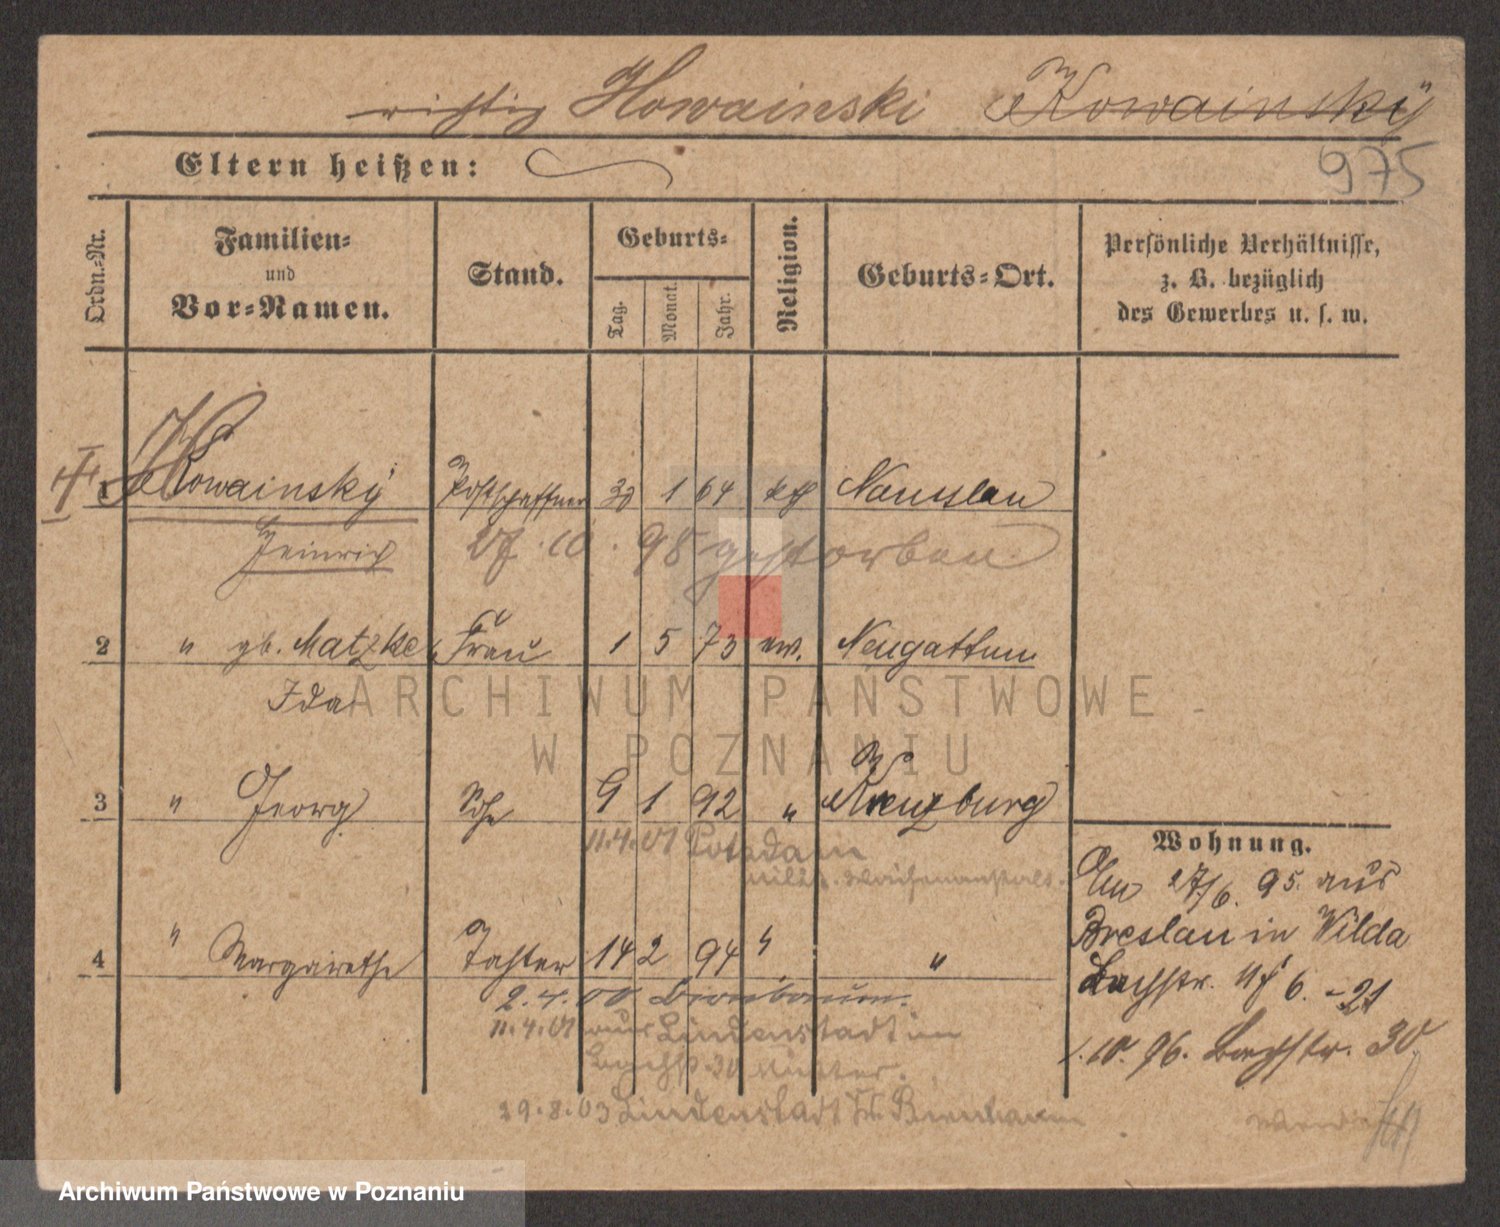 richtig Howainski Kowainsky
975
Eltern heißen:
Ordn.-Nr.
Familien-
und
Vor-Namen.
Stand.
Geburts-
Tag.
Monat.
Jahr.
Religion.
Geburts-Ort.
Persönliche Verhältnisse,
z. B. bezüglich
des Gewerbes u. s. w.
1 Kowainsky Postschaffner 30 1 64 kth Namslau
Heinrich 27.10.98 gestorben
2 " gb. Matzke Frau 1 5 73 ev. Neugattum
Ida
ARCHIWUM PAŃSTWOWE
W POZNANIU
3 " Georg Sohn 9 1 92 " Kreuzburg
11.4.01 Potsdam
Milit. Waisenanstalt.
Wohnung.
Am 27/6. 95. aus
Breslau in Wilda
4 " Margarethe Tochter 14 2 94 " "
Bachstr. 6. - 21
2.4.00 Birnbaum.
11.4.01 aus Lindenstadt in
1.10.96. Bachstr. 30.
Bachstr. 30 Mutter.
29.8.03 Lindenstadt Birnbaum
Archiwum Państwowe w Poznaniu